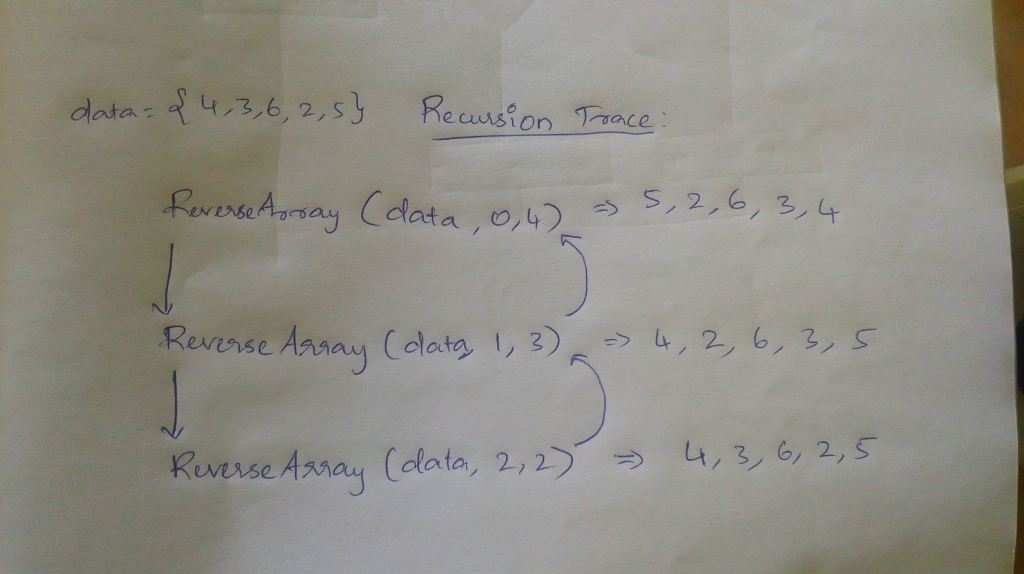 data = {4,3,6,2,5} Recursion Trace:
ReverseArray (data, 0,4) ⇒ 5, 2, 6, 3, 4
Reverse Array (data, 1, 3) ⇒ 4, 2, 6, 3, 5
Reverse Array (data, 2,2) ⇒ 4, 3, 6, 2, 5